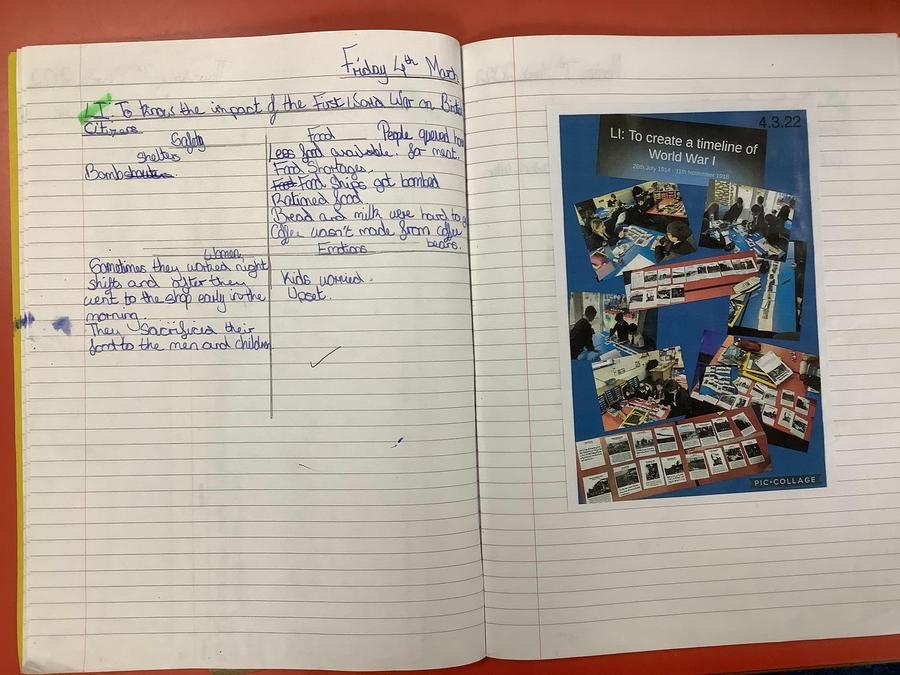 Friday 4th March
LI: To know the impact of the First World War on British
Citizens
Safety
shelters
Bomb
Food
People queued
Less food available. for meat.
Food Shortages.
Food Ships got bombed
Rationed food
Bread and milk were hard to
Coffee wasn't made from coffee
beans.
Women
Sometimes they worked night
shifts and after they
went to the shop early in the
morning.
They sacrificed their
food to the men and children
Emotions
Kids worried.
Upset.
4.3.22
LI: To create a timeline of
World War I
28th July 1914 - 11th November 1918
PIC•COLLAGE